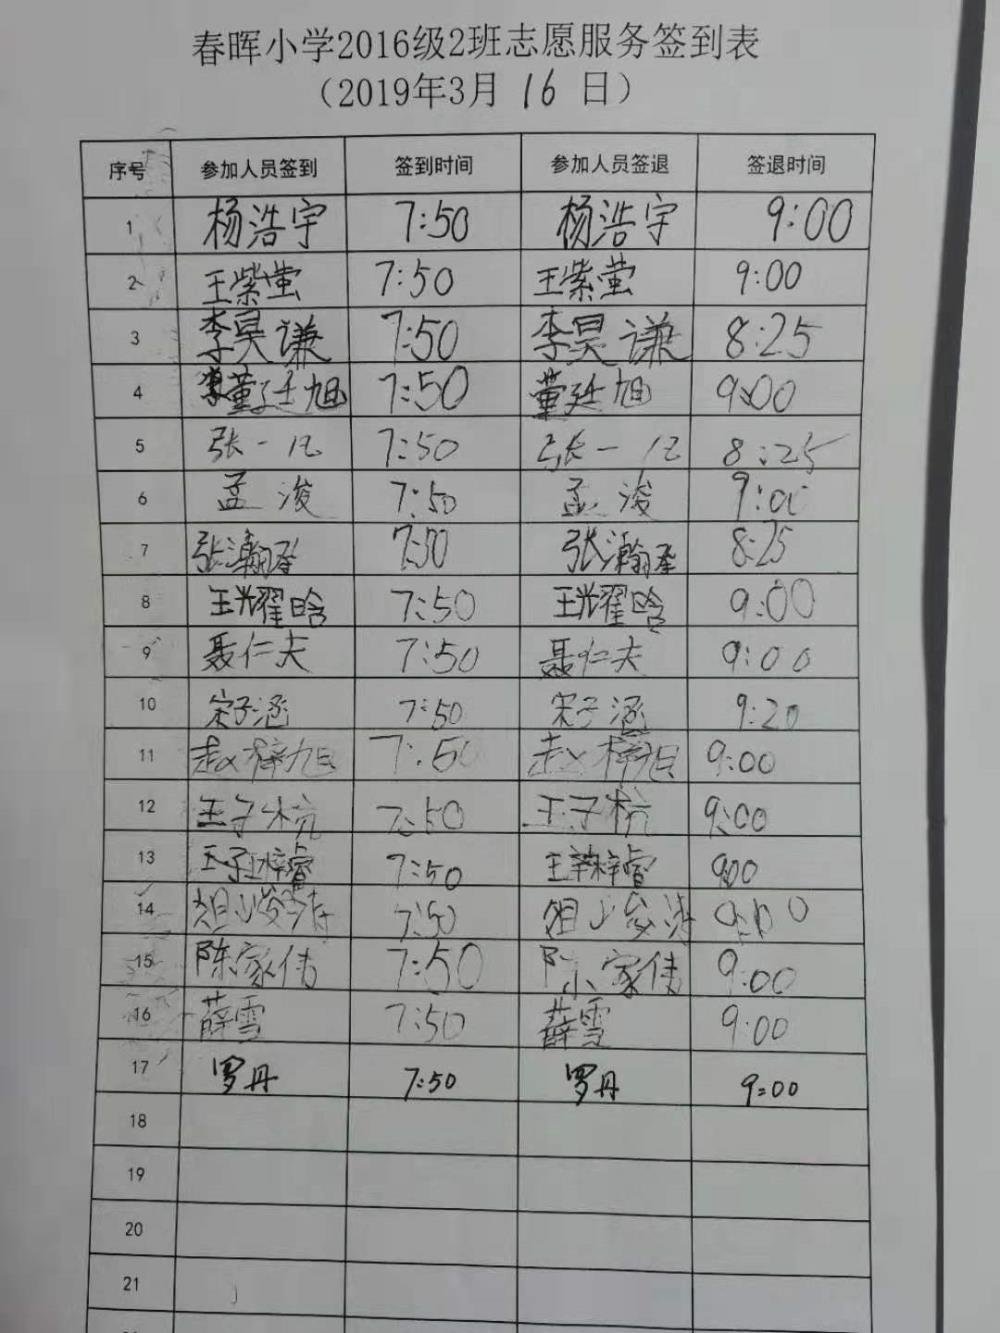 春晖小学2016级2班志愿服务签到表
（2019年3月 16 日）
序号 参加人员签到 签到时间 参加人员签退 签退时间
1 杨浩宇 7:50 杨浩宇 9:00
2 王紫萤 7:50 王紫萤 9:00
3 李昊谦 7:50 李昊谦 8:25
4 董廷旭 7:50 董廷旭 9:00
5 张一凡 7:50 张一凡 8:25
6 孟浚 7:50 孟浚 9:00
7 张瀚 7:50 张瀚 8:25
8 王耀晗 7:50 王耀晗 9:00
9 聂仁夫 7:50 聂仁夫 9:00
10 宋子涵 7:50 宋子涵 9:20
11 赵梓旭 7:50 赵梓旭 9:00
12 王子杭 7:50 王子杭 9:00
13 王梓睿 7:50 王梓睿 9:00
14 7:50 9:00
15 陈家伟 7:50 陈家伟 9:00
16 薛雪 7:50 薛雪 9:00
17 罗丹 7:50 罗丹 9:00
18
19
20
21